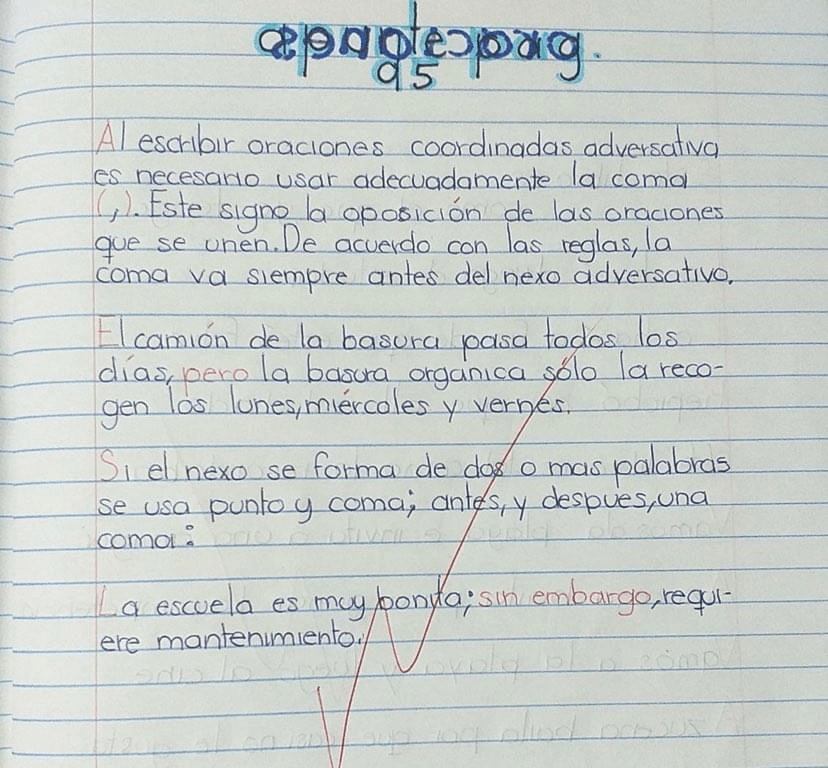 95
Al escribir oraciones coordinadas adversativa
es necesario usar adecuadamente la coma
(,). Este signo la oposición de las oraciones
que se unen. De acuerdo con las reglas, la
coma va siempre antes del nexo adversativo.
El camión de la basura pasa todos los
días, pero la basura organica sólo la reco-
gen los lunes, miércoles y vernes.
Si el nexo se forma de dos o mas palabras
se usa punto y coma; antes, y despues, una
coma:
La escuela es muy bonita; sin embargo, requi-
ere mantenimiento.